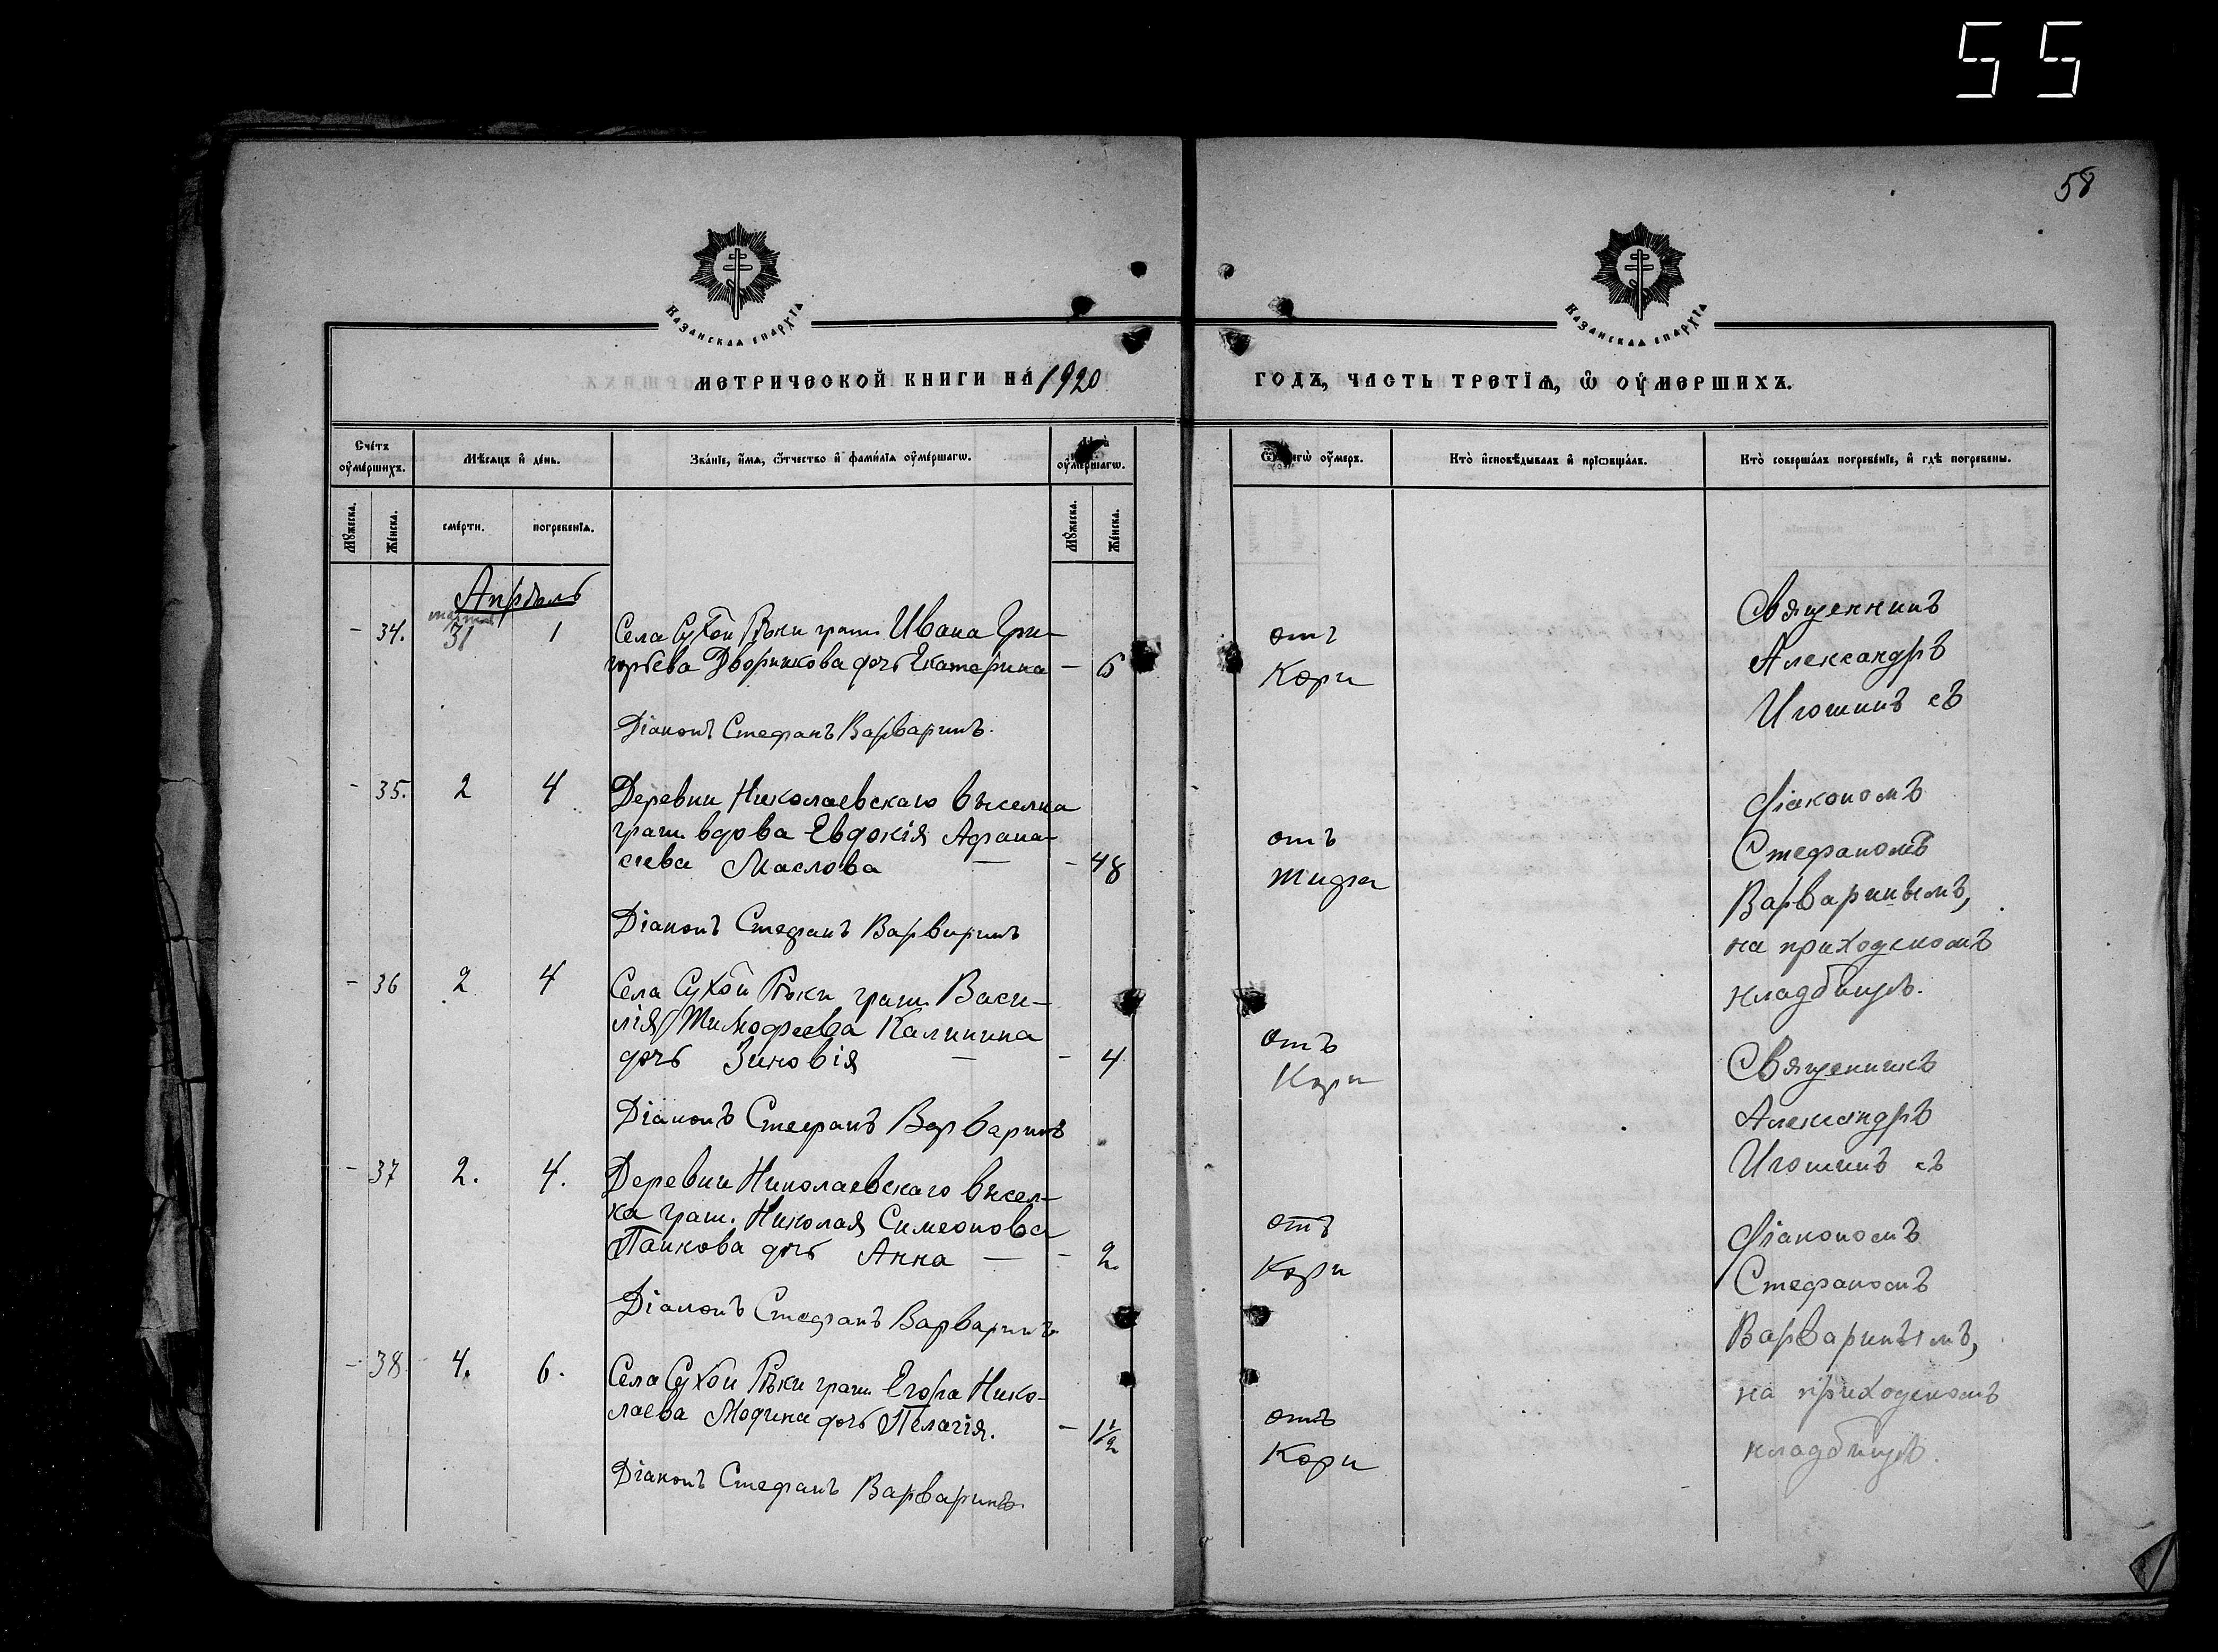 55
58
КАЗАНСКАѦ ЕПАРХЇА
КАЗАНСКАѦ ЕПАРХЇА
МЕТРИЧЕСКОЙ КНИГИ НА 1920
ГОДЪ, ЧАСТЬ ТРЕТЇѦ, Ѽ ОУМЕРШИХЪ.
Счетъ оумершихъ.
Мѣсяцъ и день.
Званїе, имѧ, ѻтчество и фамилїѧ оумершагѡ.
оумершагѡ.
чегѡ оумеръ.
Кто исповѣдывалъ и прїѡбщалъ.
Кто совершалъ погребенїе, и гдѣ погребены.
Мужеска.
Женска.
смерти.
погребенїѧ.
Мужеска.
Женска.
Апрѣль
марта
- 34. 31 1 Села Сухой Рѣки граж. Ивана Гри-
горьева Дворникова дочь Екатерина - 6
отъ
Кори
Діаконъ Стефанъ Варваринъ.
Священникъ
Александръ
Игошинъ съ
- 35. 2 4 Деревни Николаевскаго выселка
граж. вдова Евдокія Афана-
сіева Маслова — - 48
отъ
тифа
Діаконъ Стефанъ Варваринъ
діакономъ
Стефаномъ
Варваринымъ,
на приходскомъ
кладбищѣ.
- 36 2 4 Села Сухой Рѣки граж. Васи-
лія Тимофеева Калинина
дочь Зиновія — - 4
отъ
Кори
Діаконъ Стефанъ Варваринъ
Священникъ
Александръ
Игошинъ съ
- 37 2. 4. Деревни Николаевскаго высел-
ка граж. Николая Симеонова
Панкова дочь Анна — - 2.
отъ
Кори
Діаконъ Стефанъ Варваринъ
діакономъ
Стефаномъ
Варваринымъ,
на приходскомъ
кладбищѣ.
- 38 4. 6. Села Сухой Рѣки граж. Егора Нико-
лаева Модина дочь Пелагія. - 1½
отъ
Кори
Діаконъ Стефанъ Варваринъ.